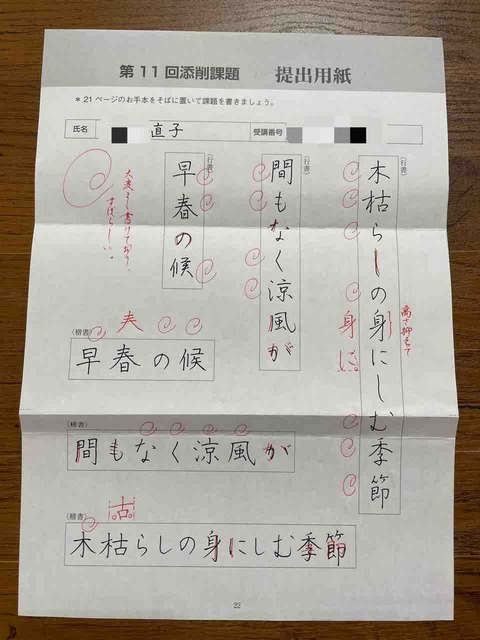 第11回添削課題 提出用紙
＊21ページのお手本をそばに置いて課題を書きましょう。
氏名 直子 受講番号
〈行書〉
木枯らしの身にしむ季節
高さ抑えて
身に
〈行書〉
間もなく涼風が
〈行書〉
早春の候
大変よく書けており、
すばらしい。
〈楷書〉
夫
早春の候
〈楷書〉
間もなく涼風が
〈楷書〉
古
木枯らしの身にしむ季節
22